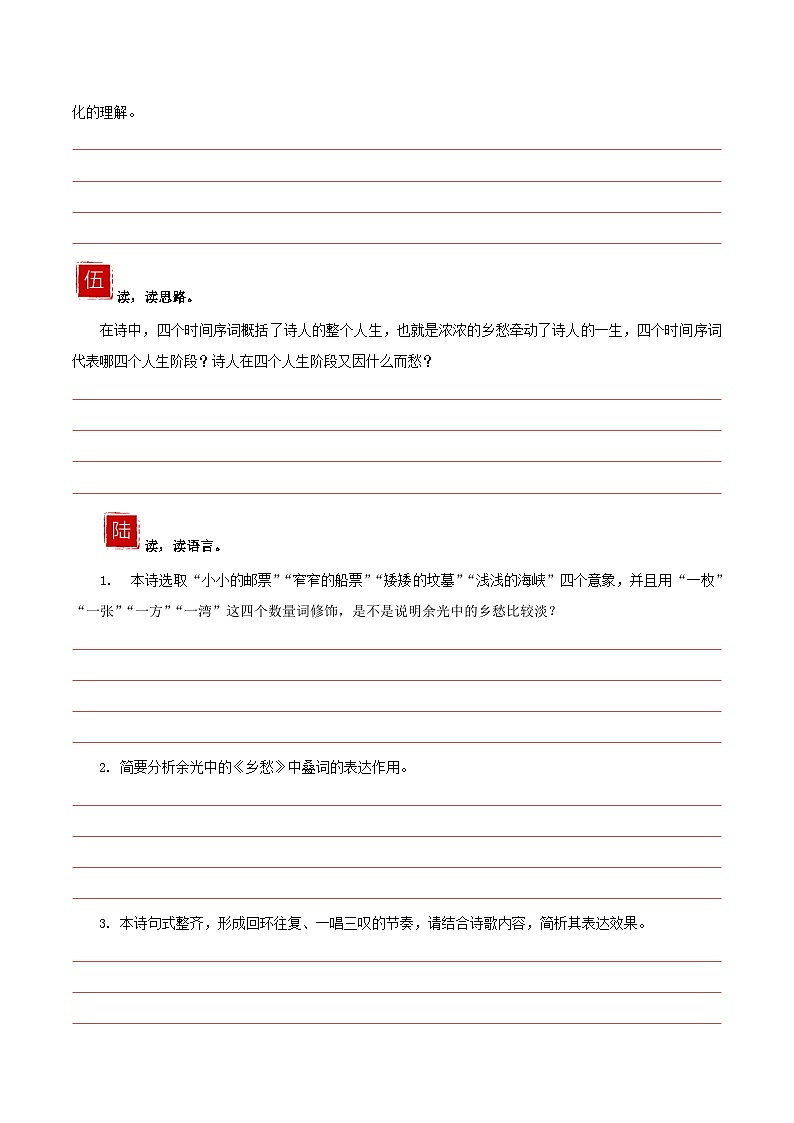 化的理解。
伍 读，读思路。
在诗中，四个时间序词概括了诗人的整个人生，也就是浓浓的乡愁牵动了诗人的一生，四个时间序词
代表哪四个人生阶段？诗人在四个人生阶段又因什么而愁？
陆 读，读语言。
1. 本诗选取“小小的邮票”“窄窄的船票”“矮矮的坟墓”“浅浅的海峡”四个意象，并且用“一枚”
“一张”“一方”“一湾”这四个数量词修饰，是不是说明余光中的乡愁比较淡？
2. 简要分析余光中的《乡愁》中叠词的表达作用。
3. 本诗句式整齐，形成回环往复、一唱三叹的节奏，请结合诗歌内容，简析其表达效果。